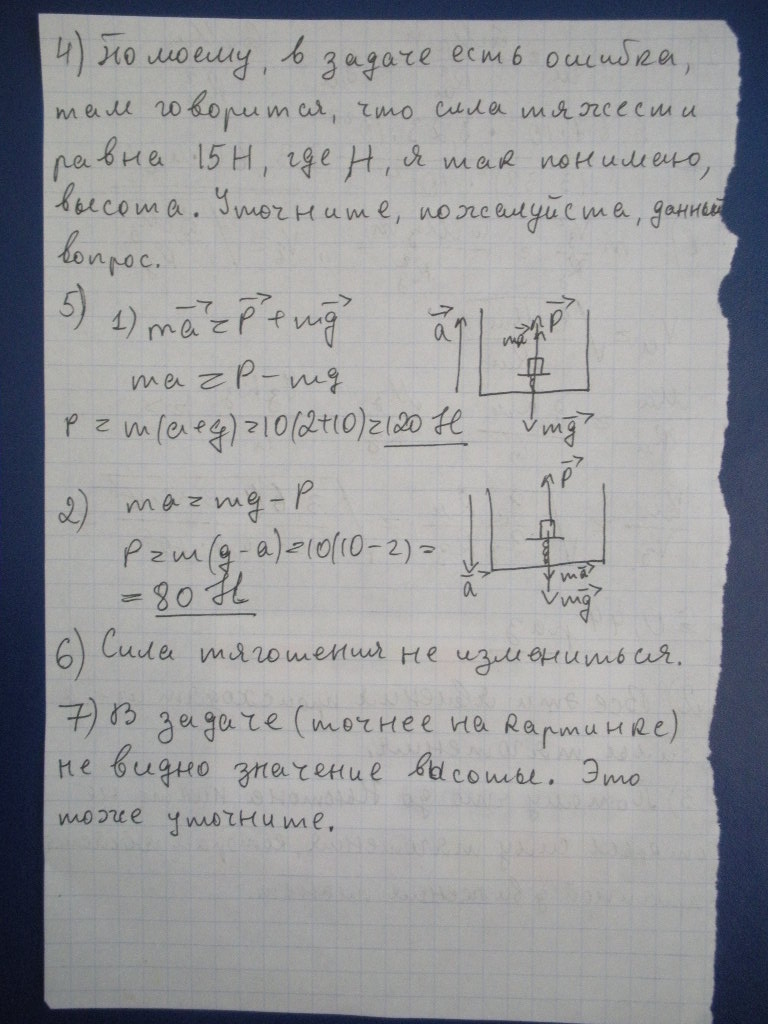 4) По моему, в задаче есть ошибка,
там говорится, что сила тяжести
равна 15 Н, где Н, я так понимаю,
высота. Уточните, пожалуйста, данный
вопрос.
5) 1) ma⃗ = P⃗ + mg⃗
ma = P - mg
P = m(a+g) = 10(2+10) = 120 Н
a⃗
ma⃗ P⃗
mg⃗
2) ma = mg - P
P = m(g-a) = 10(10-2) =
= 80 Н
P⃗
a⃗
ma⃗
mg⃗
6) Сила тягошения не измениться.
7) В задаче (точнее на картинке)
не видно значение высоты. Это
тоже уточните.